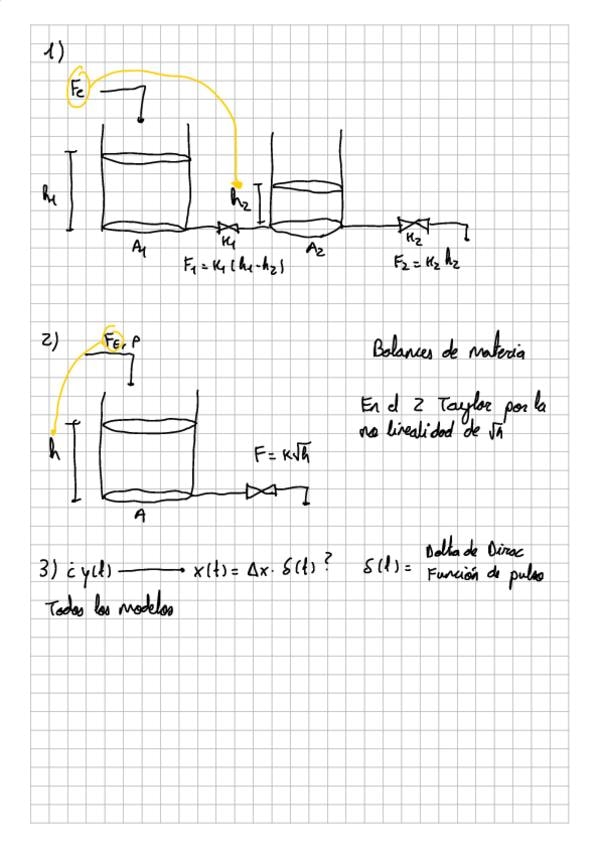 1)
Fc
h1
h2
K1
K2
A1
A2
F1 = K1 (h1-h2)
F2 = K2 h2
2)
FE, ρ
Balances de materia
En el 2 Taylor por la
no linealidad de √h
h
F = K√h
A
3) ¿ y(t) x(t) = Δx · δ(t) ?
δ(t) = Delta de Dirac
Función de pulso
Todos los modelos